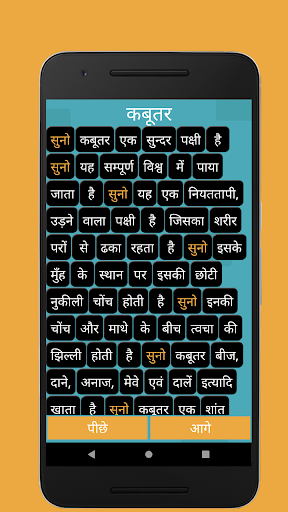 कबूतर
सुनो कबूतर एक सुन्दर पक्षी है
सुनो यह सम्पूर्ण विश्व में पाया
जाता है सुनो यह एक नियततापी,
उड़ने वाला पक्षी है जिसका शरीर
परों से ढका रहता है सुनो इसके
मुँह के स्थान पर इसकी छोटी
नुकीली चोंच होती है सुनो इनकी
चोंच और माथे के बीच त्वचा की
झिल्ली होती है सुनो कबूतर बीज,
दाने, अनाज, मेवे एवं दालें इत्यादि
खाता है सुनो कबूतर एक शांत
पीछे आगे